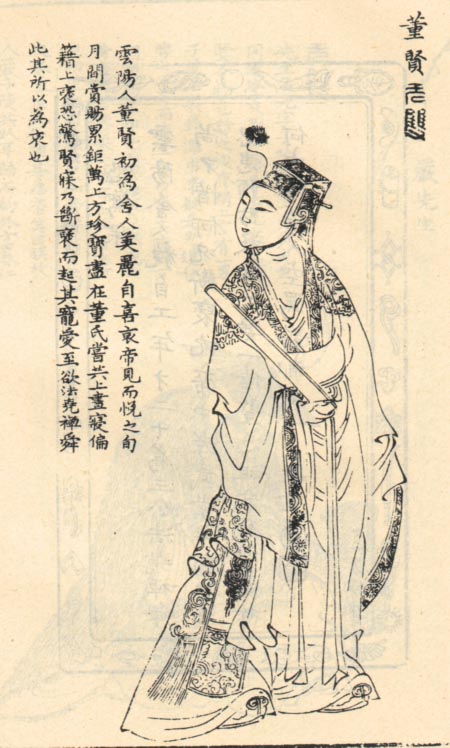 董賢 无雙
雲陽人董賢初為舍人美麗自喜哀帝見而悅之旬
月間賞賜累鉅萬上方珍寶盡在董氏嘗共上晝寢偏
籍上褎恐驚賢寐乃斷褎而起其寵愛至欲法堯禪舜
此其所以為哀也